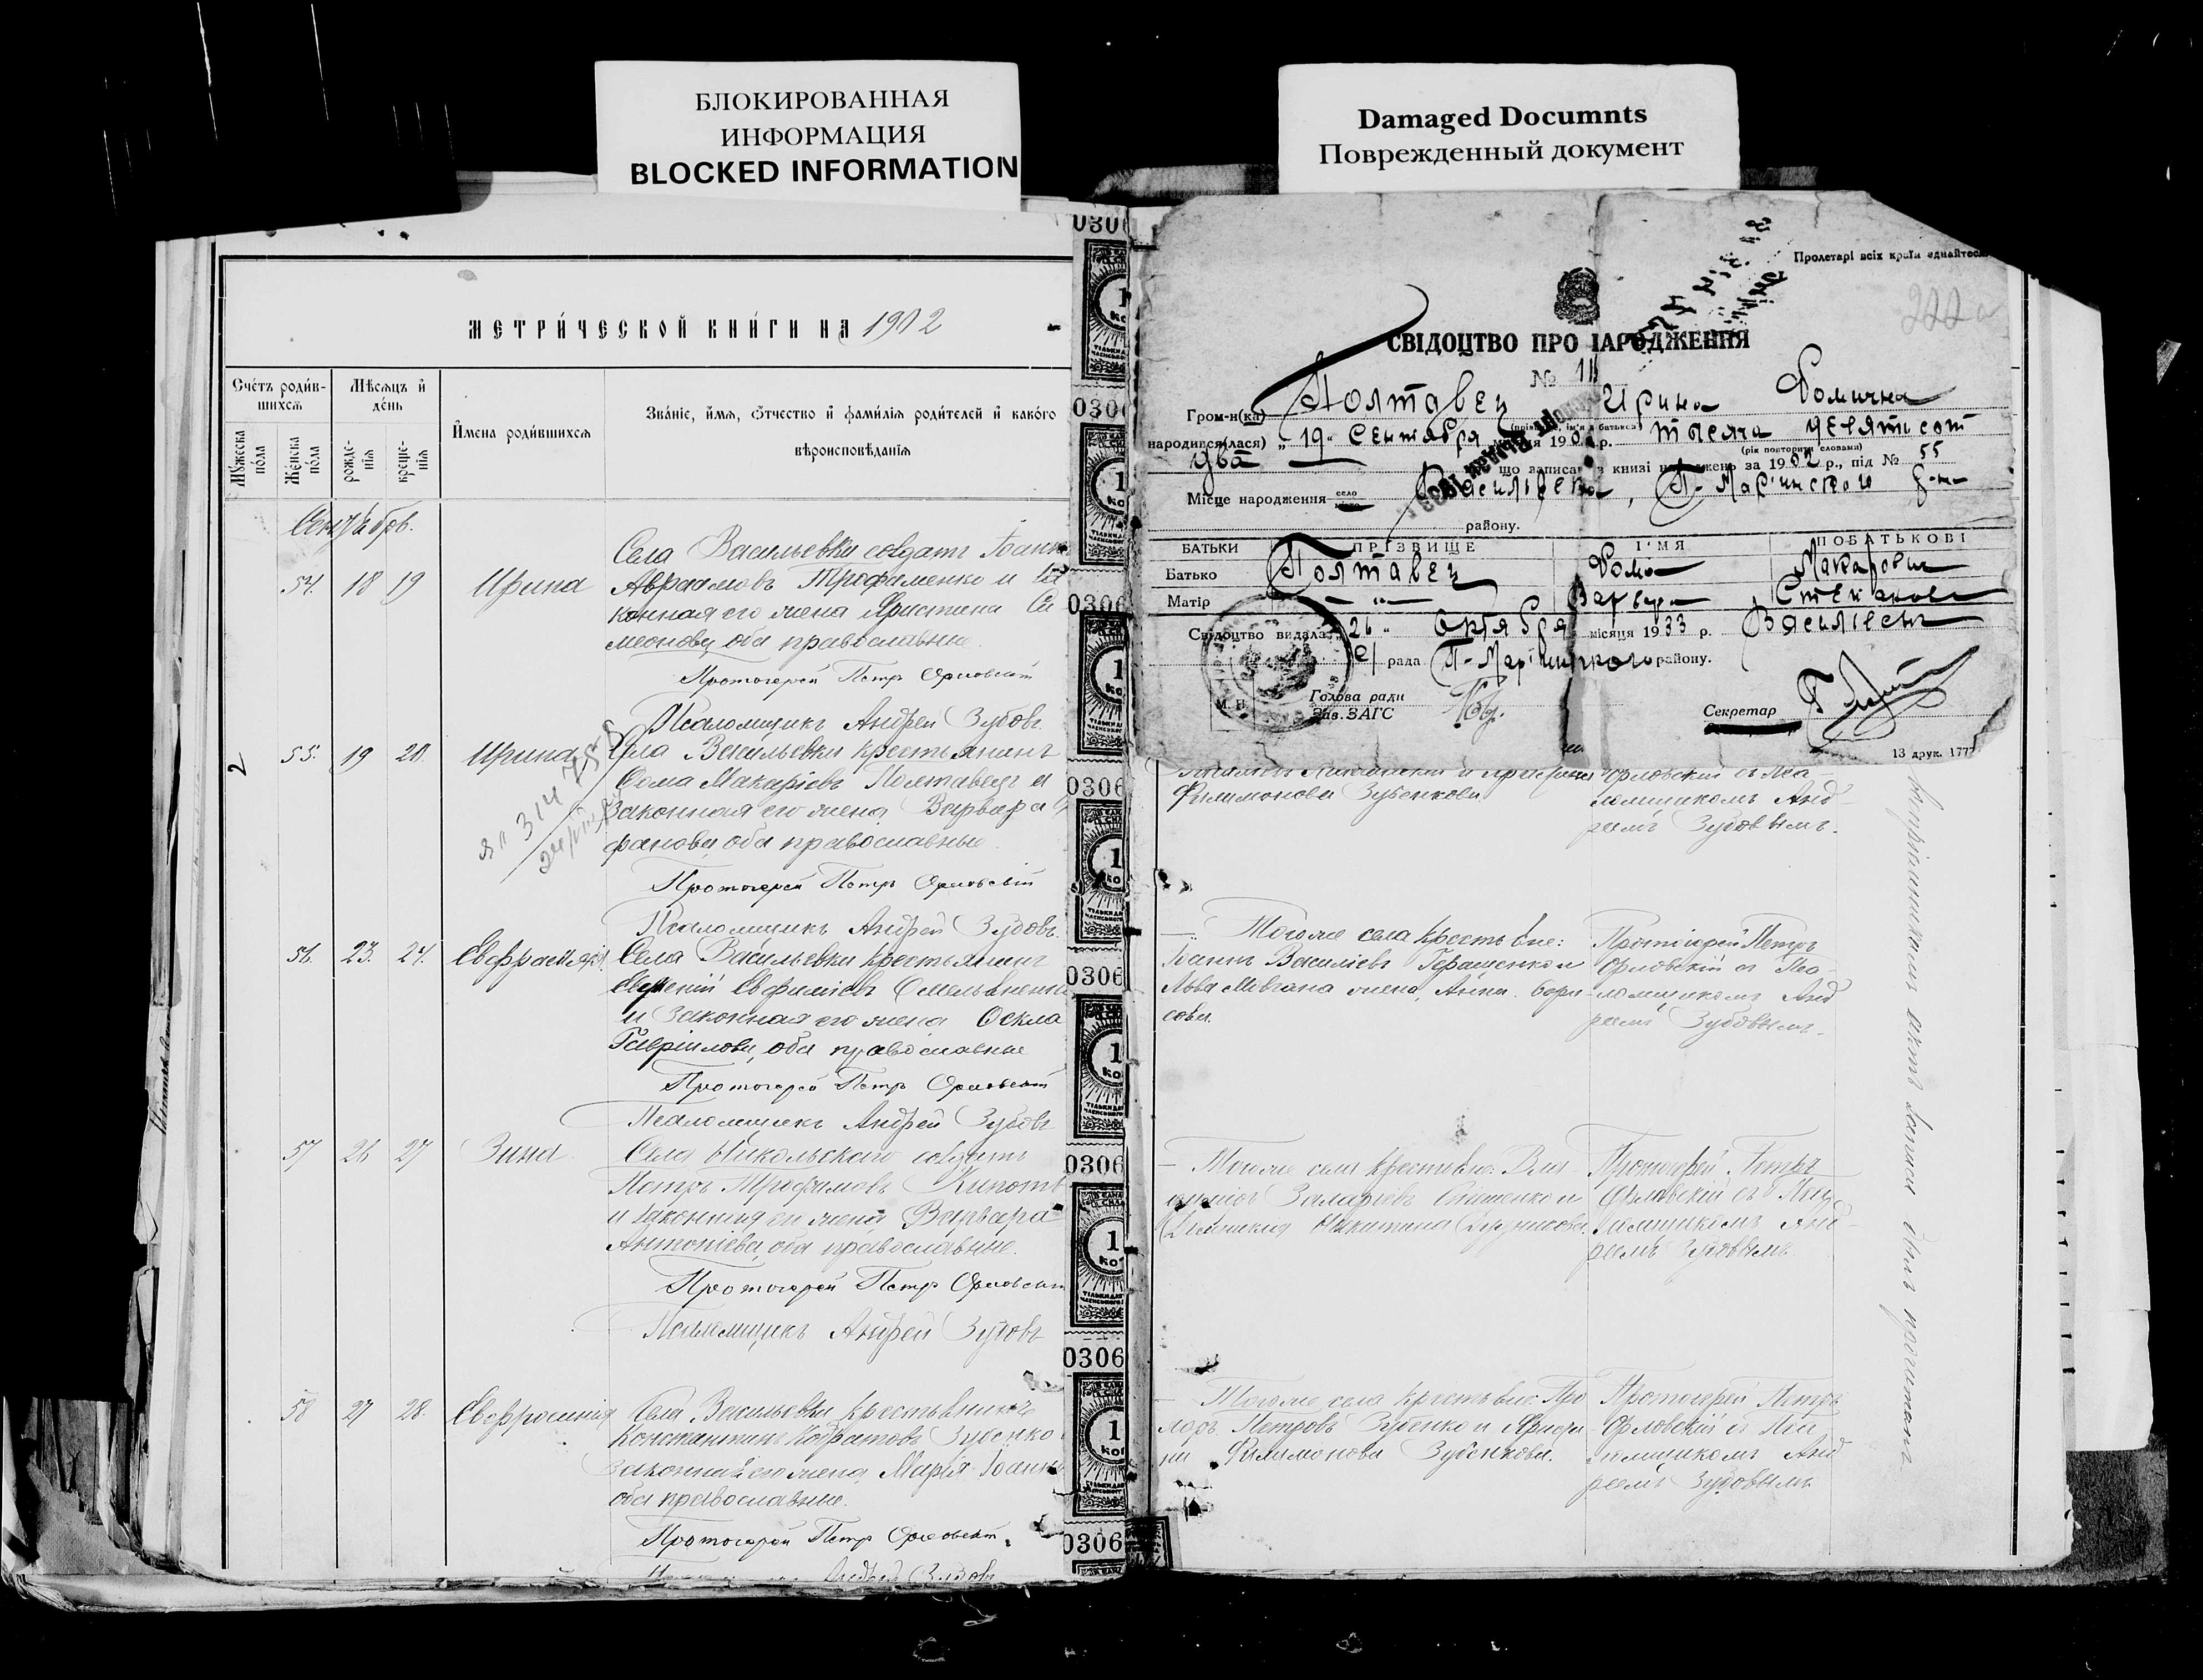 БЛОКИРОВАННАЯ
ИНФОРМАЦИЯ
BLOCKED INFORMATION
Damaged Documnts
Поврежденный документ
МЕТРИ́ЧЕСКОЙ КНИ́ГИ НА 1902
Сче́тъ роди́в-
шихсѧ
Мѣ́сѧцъ и҆
де́нь
И҆мена роди́вшихсѧ
Зва́нїе, и҆́мѧ, ѻ҆́тчество и҆ фами́лїѧ роди́телей и҆ како́го
вѣроисповѣ́данїѧ
Мꙋ́жеска
по́ла
Же́нска
по́ла
рожде-
нїѧ
креще-
нїѧ
Сентябрь.
54. 18 19 Ирина
Села Васильевки солдатъ Іоаннъ
Авраамовъ Трофаменко и за
конная его жена Христина Си
меонова, оба православные.
Протоіерей Петръ Орловскій
Псаломщикъ Андрей Зубовъ.
2
55. 19 20. Ирина
Села Васильевки крестьянинъ
Ѳома Макаріевъ Полтавецъ и
законная его жена Варвара
фанова, оба православные.
Протоіерей Петръ Орловскій
Псаломщикъ Андрей Зубовъ.
56. 23. 24. Евфросинія
Села Васильевки крестьянинъ
Евфиміевъ Омельяненко
и законная его жена Ѳекла
Гавріилова, оба православные
Протоіерей Петръ Орловскій
Псаломщикъ Андрей Зубовъ
57 26 27 Зина
Села Никольскаго солдатъ
Петръ Трофимовъ
и законная его жена Варвара
Антоніева, оба православные.
Протоіерей Петръ Орловскій
Псаломщикъ Андрей Зубовъ
58 27 28. Евфросинія
Села Васильевки крестьянинъ
Константинъ Зубенко
законная его жена Марія Іоанно
оба православные.
Протоіерей Петръ Орловскій.
0306
0306
0306
0306
0306
0306
0306
0306
Пролетарі всіх країн єднайтеся
222
СВІДОЦТВО ПРО НАРОДЖЕННЯ
№ 111
Гром-н(ка) Полтавец Ирина Фомична
народився(лася) „19" Сентября місяця 1902 р. тысяча девятисот
два
(рік повторити словами)
що записано в книзі народжень за 1902 р., під № 55
Місце народження село Василівка, П-Мар'инского р-на
району.
БАТЬКИ ПРІЗВИЩЕ І'МЯ ПОБАТЬКОВІ
Батько Полтавец Фома Макарович
Матір —„— Варвара Степановна
Свідоцтво видала „26" Октября місяця 1933 р. Василівська
с/рада П-Мар'инского району.
Голова ради
Зав. ЗАГС
М. П.
Секретар
13 друк. 177
Филимонова Зубенкова.
Орловскій съ Пса-
ломщикомъ Анд-
реемъ Зубовымъ.
— Тогоже села крестьяне:
Іоаннъ Василіевъ Геращенко и
жена, Анна Бори-
сова.
Протоіерей Петръ
Орловскій съ Пса-
ломщикомъ Анд
реемъ Зубовымъ.
— Тогоже села крестьяне:
Протоіерей Петръ
Орловскій съ Пса-
ломщикомъ Анд-
реемъ Зубовымъ
— Тогоже села крестьяне:
Петровъ Зубенко и
Филимонова Зубенкова.
Протоіерей Петръ
Орловскій съ Пса
ломщикомъ Анд
реемъ Зубовымъ